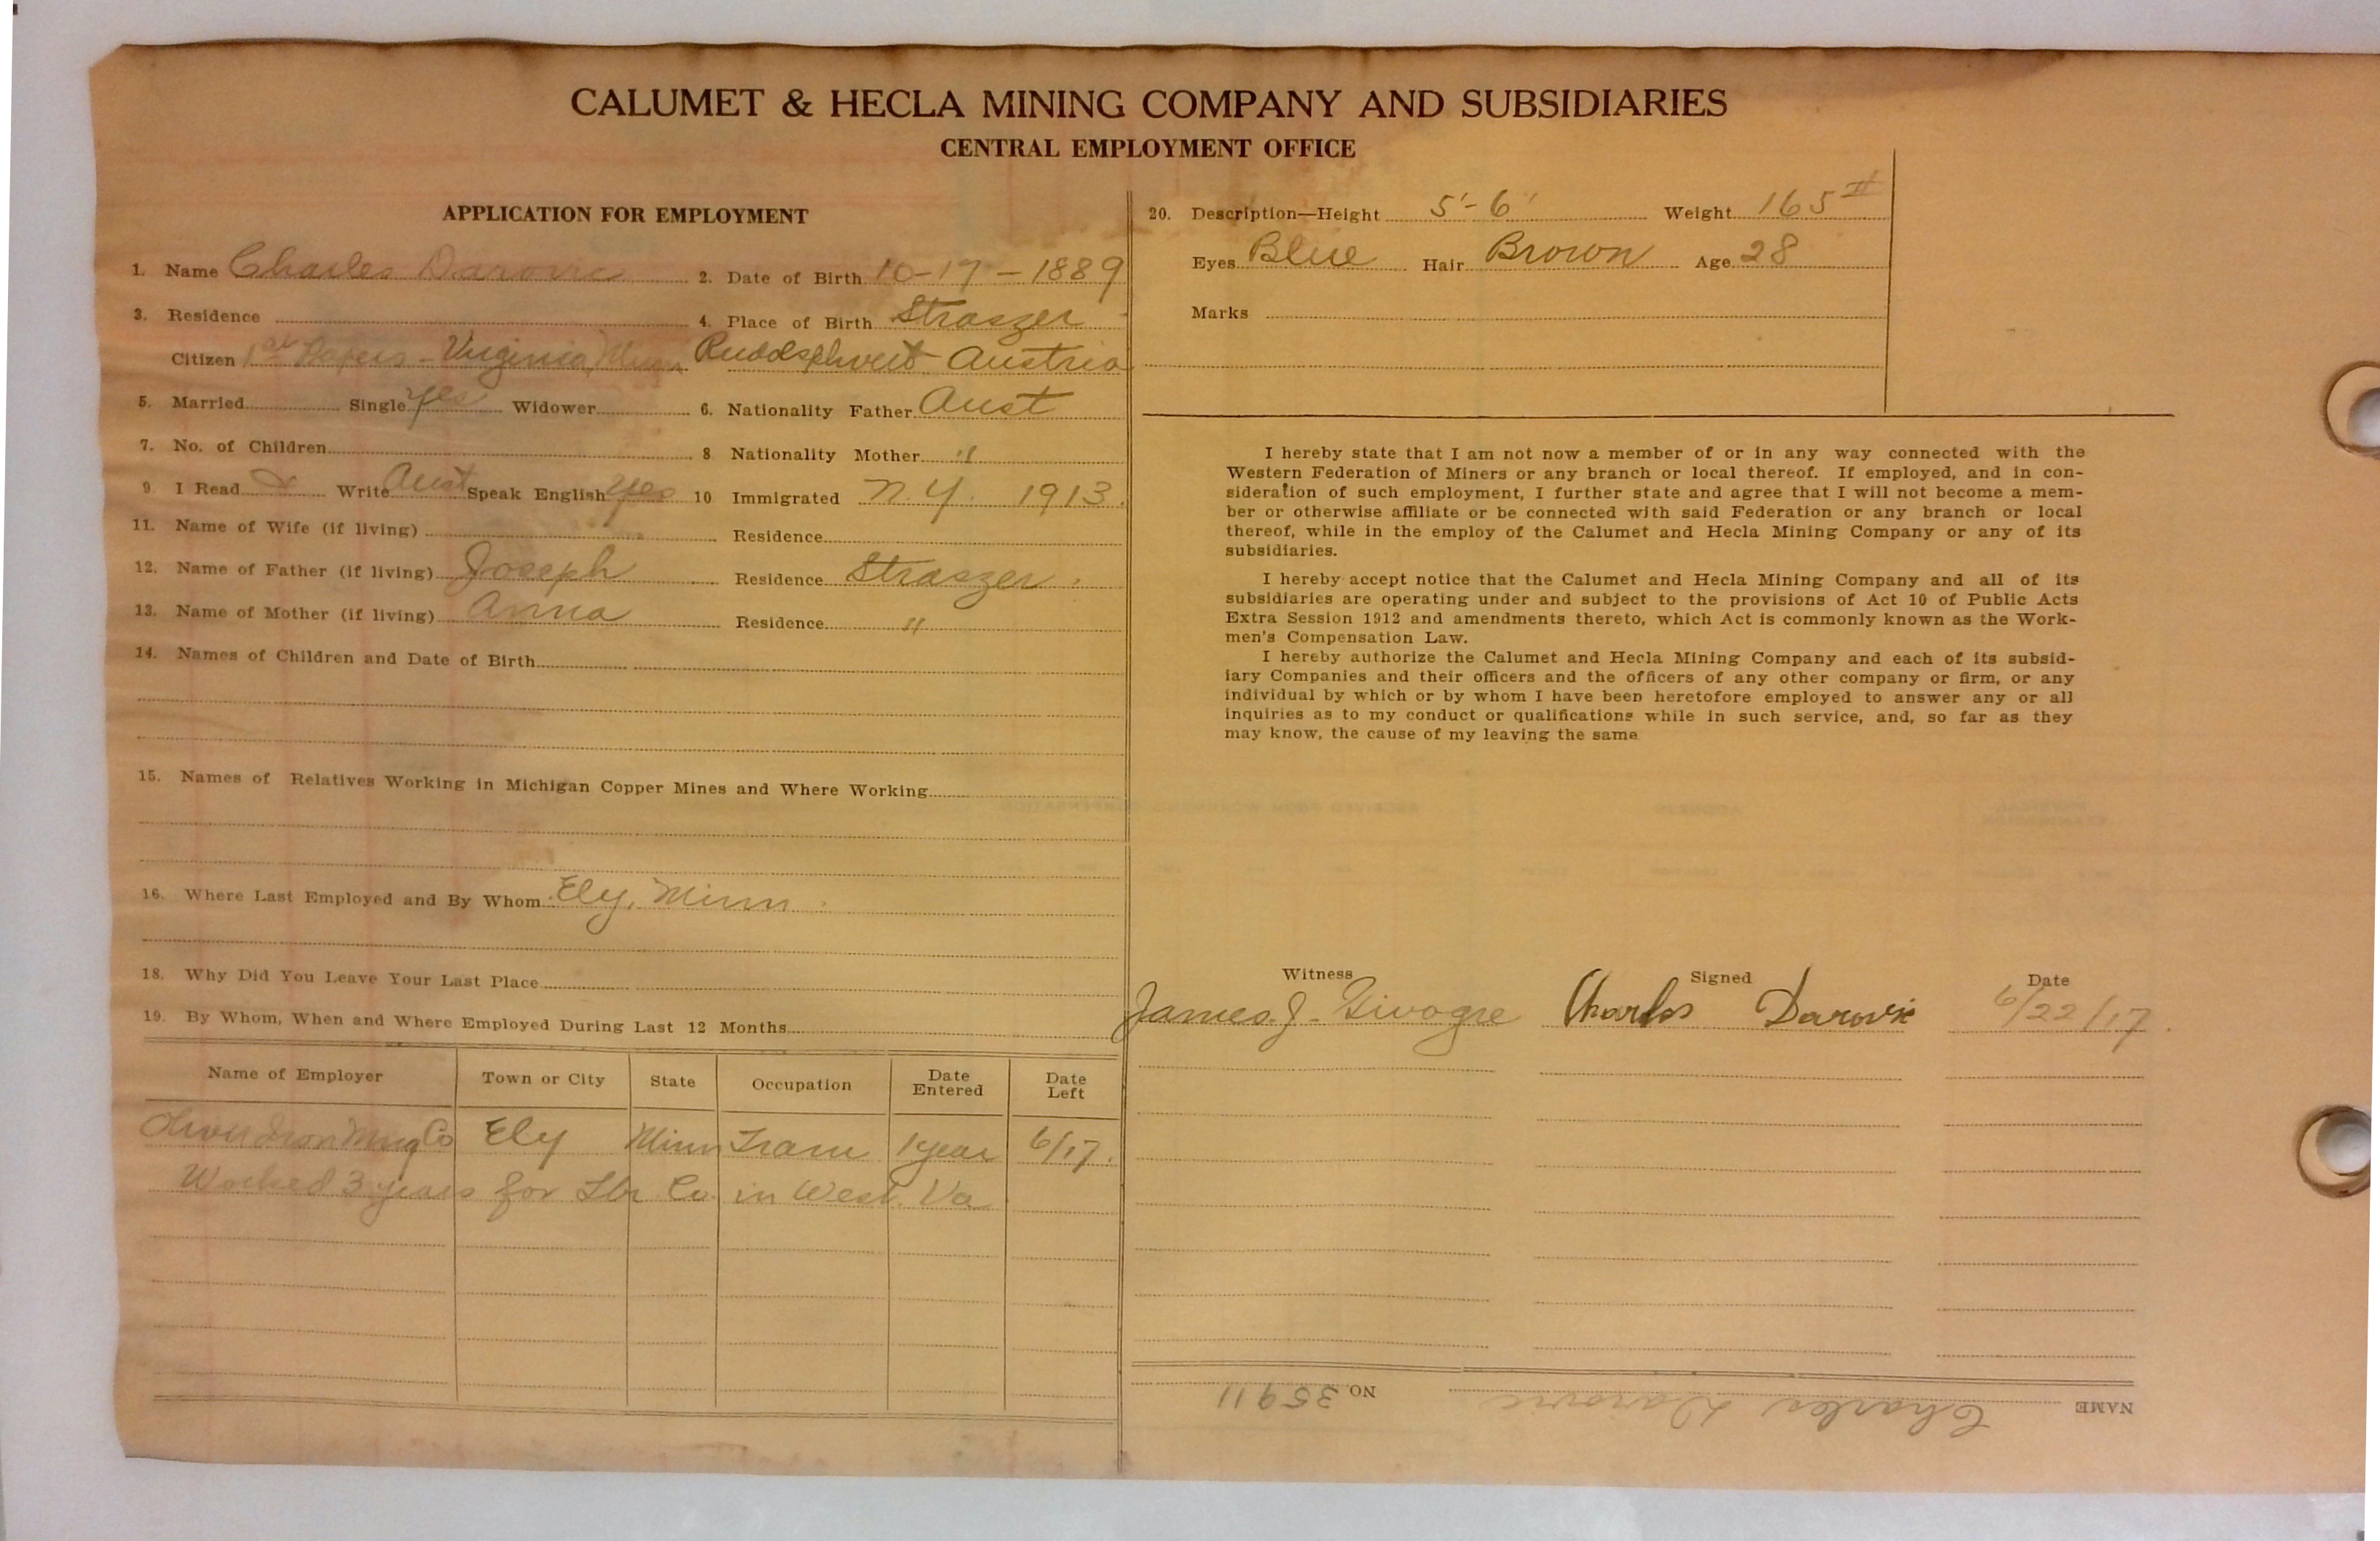 CALUMET & HECLA MINING COMPANY AND SUBSIDIARIES
CENTRAL EMPLOYMENT OFFICE
APPLICATION FOR EMPLOYMENT
1. Name Charles Darovic 2. Date of Birth 10-17-1889
3. Residence 4. Place of Birth Straszer
Citizen 1st Papers - Virginia, Minn Austria
5. Married Single yes Widower 6. Nationality Father Aust
7. No. of Children 8 Nationality Mother "
9. I Read & Write Aust Speak English yes 10 Immigrated N.Y. 1913.
11. Name of Wife (if living) Residence
12. Name of Father (if living) Joseph Residence Straszer.
13. Name of Mother (if living) Anna Residence "
14. Names of Children and Date of Birth
15. Names of Relatives Working in Michigan Copper Mines and Where Working
16. Where Last Employed and By Whom Ely, Minn
18. Why Did You Leave Your Last Place
19. By Whom, When and Where Employed During Last 12 Months
Name of Employer Town or City State Occupation Date Entered Date Left
Oliver Iron Mng Co Ely Minn Tram 1 year 6/17.
Worked 3 years for Lbr Co. in West. Va
20. Description—Height 5'-6" Weight 165 #
Eyes Blue Hair Brown Age 28
Marks
I hereby state that I am not now a member of or in any way connected with the
Western Federation of Miners or any branch or local thereof. If employed, and in con-
sideration of such employment, I further state and agree that I will not become a mem-
ber or otherwise affiliate or be connected with said Federation or any branch or local
thereof, while in the employ of the Calumet and Hecla Mining Company or any of its
subsidiaries.
I hereby accept notice that the Calumet and Hecla Mining Company and all of its
subsidiaries are operating under and subject to the provisions of Act 10 of Public Acts
Extra Session 1912 and amendments thereto, which Act is commonly known as the Work-
men's Compensation Law.
I hereby authorize the Calumet and Hecla Mining Company and each of its subsid-
iary Companies and their officers and the officers of any other company or firm, or any
individual by which or by whom I have been heretofore employed to answer any or all
inquiries as to my conduct or qualifications while in such service, and, so far as they
may know, the cause of my leaving the same
Witness Signed Date
James J. Charles Darovic 6/22/17.
NAME Charles Darovic NO. 35911